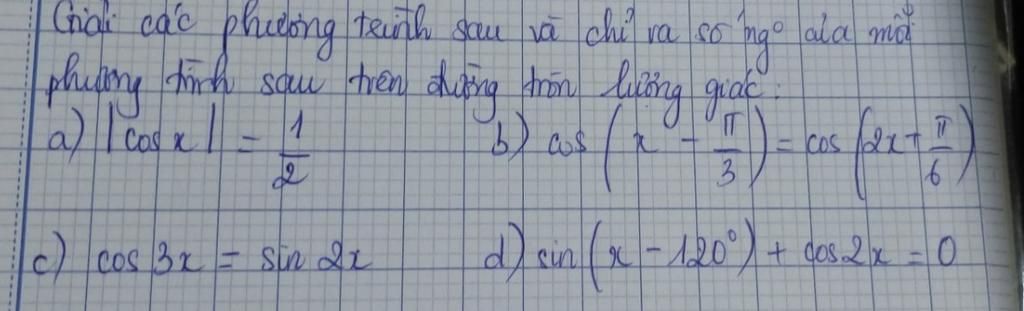 Giải các phương trình sau và chỉ ra số ngo của một
phương trình sau trên đường tròn lượng giác:
a) |cos x| = 1/2 b) cos (x - π/3) = cos (2x + π/6)
c) cos 3x = sin 2x d) sin (x - 120°) + cos 2x = 0